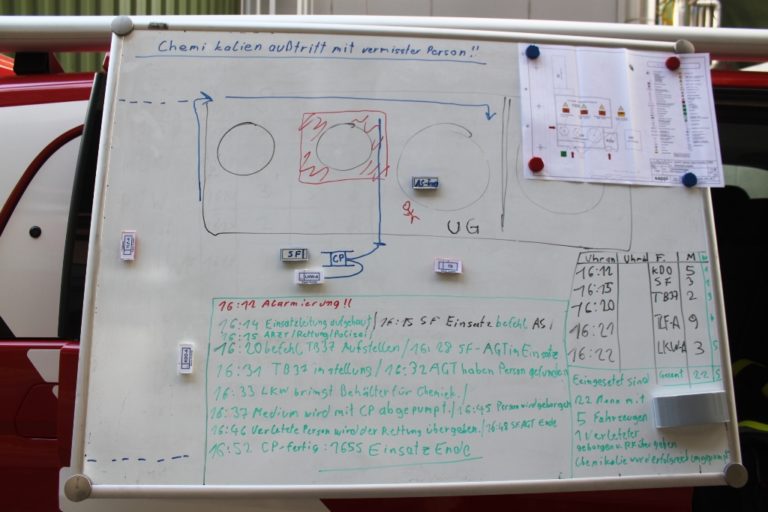 Chemikalien außtritt mit vermisster Person!!
UG
SF
CP
16:12 Alarmierung!!
16:14 Einsatzleitung aufgebaut / 16:15 SF Einsatzbefehl AS
16:15 ARZT/Rettung/Polizei
16:20 befehl TB37 Aufstellen / 16:28 SF-AGT in Einsatz
16:31 TB37 in stellung / 16:32 AGT haben Person gefunden
16:33 LKW bringt Behälter für Chemiek./
16:37 Medium wird mit CP abgepumpt / 16:45 Person wird geborgen
16:46 Verletzte Person wird der Rettung übergeben. / 16:48 SF AGT Ende
16:52 CP-fertig: 1655 Einsatz Ende
Uhr an Uhr F. M
16:12 KDO 5
16:15 SF 3
16:20 TB37 2
16:21 TLF-A 9
16:22 LKW-A 3
Gesamt 22 5
Eeingesetzt sind
22 Mann mit
5 Fahrzeugen
1 Verletzter
geborgen u. RK übergeben
Chemikalie wurde erfolgreich umgepumpt